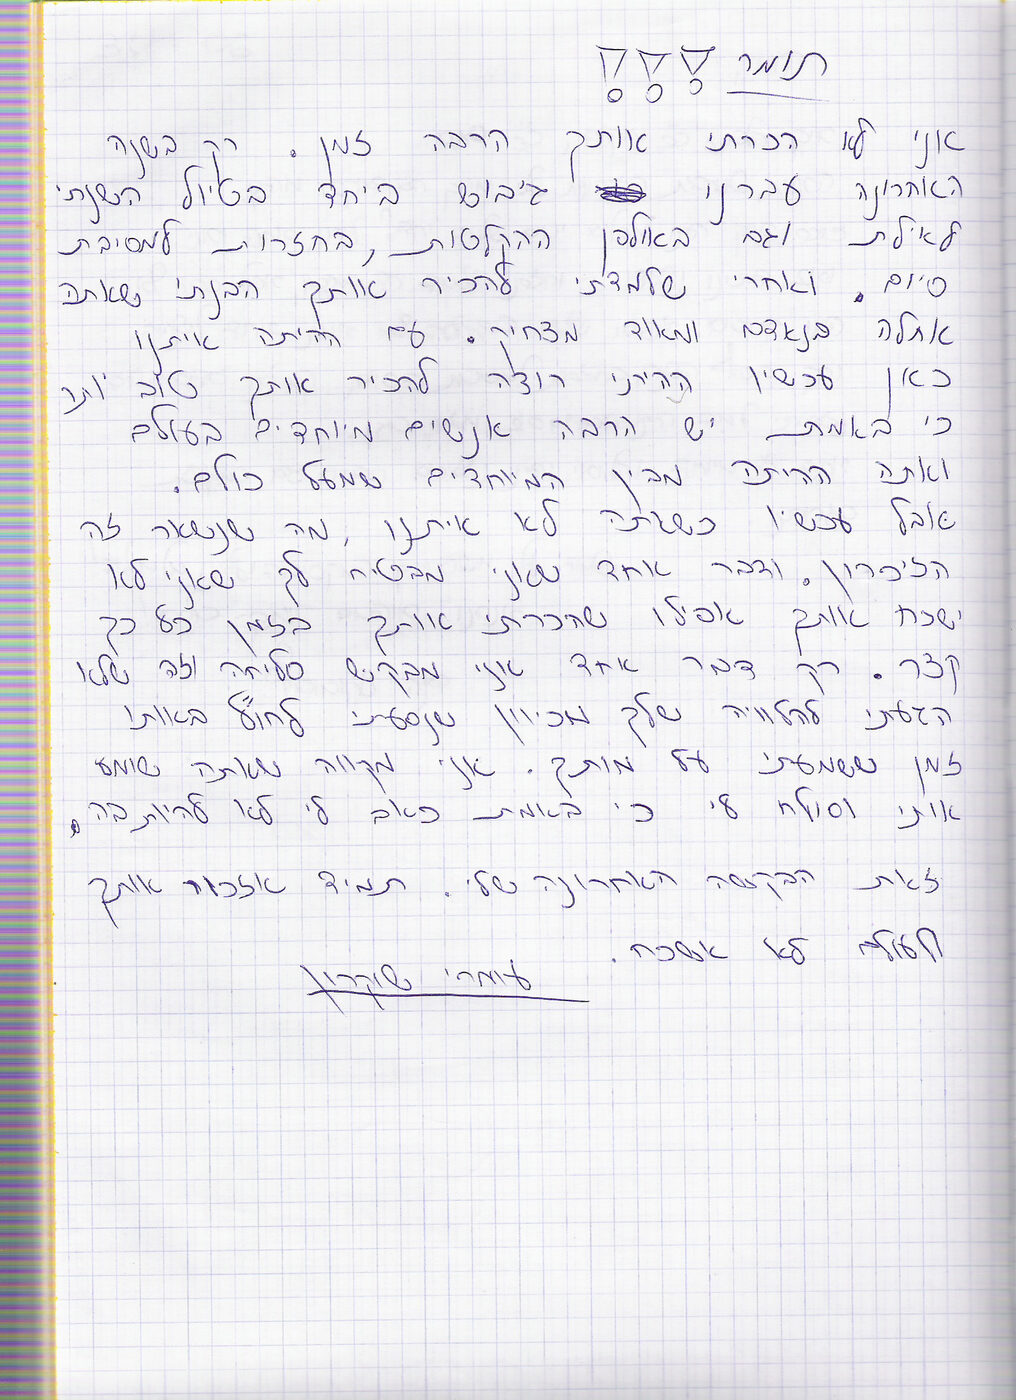 תומר !!!
אני לא הכרתי אותך הרבה זמן. רק בשנה
האחרונה עברנו גיבוש ביחד בטיול השנתי
לאילת וגם באולפן ההקלטות, בחזרות למסיבת
סיום. ואחרי שלמדתי להכיר אותך הבנתי שאתה
אחלה בנאדם ומאוד מצחיק. עם היתה איתנו
כאן עכשיו הייתי רוצה להכיר אותך טוב יותר
כי באמת יש הרבה אנשים מיוחדים בעולם
ואתה היתה מבין המיוחדים שמעל כולם.
אבל עכשיו כשאתה לא איתנו, מה שנשאר זה
הזיכרון. ודבר אחד שאני מבטיח לך שאני לא
ישכח אותך אפילו שהכרתי אותך בזמן כל כך
קצר. רק דבר אחד אני מבקש סליחה וזה שלא
הגעתי להלוויה שלך מכיוון שנסעתי לחו"ל באותו
זמן ששמעתי על מותך. אני מקווה שאתה שומע
אותי וסולח לי כי באמת כאב לי לא להיות בה.
זאת הבקשה האחרונה שלי. תמיד אזכור אותך
ולעולם לא אשכח.
עומרי שוקרון